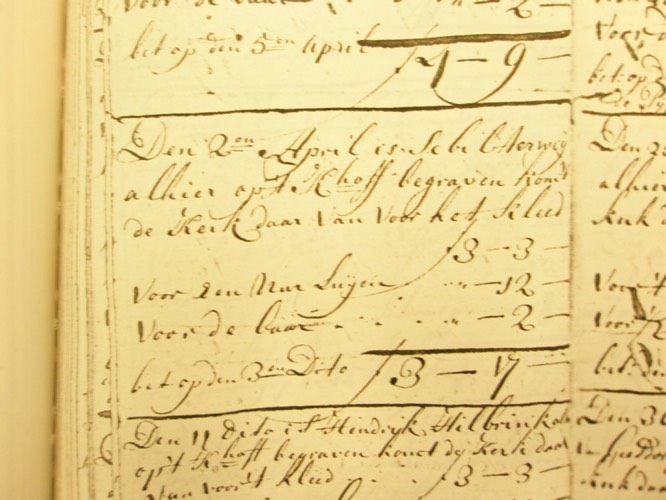 voor de baar - 2 -
bet op den 5en April f 4 - 9 -
Den 2en April is Seb: Otterweg
alhier op't K hoff begraven komt
de Kerk daar van voor het kleed
f 3 - 3 -
voor Een Uur Luijen " - 12 -
voor de baar . . . " - 2 -
bet op den 3en Dito f 3 - 17 -
Den 11 dito is Hendryk Hilbrink
op't K hoff begraven komt dy Kerk daar
van voor't kleed . . f 3 - 3 -
voor
bet: op
Den
alhier
kerk
voor
voor
bet:
Den 30
kerk daar